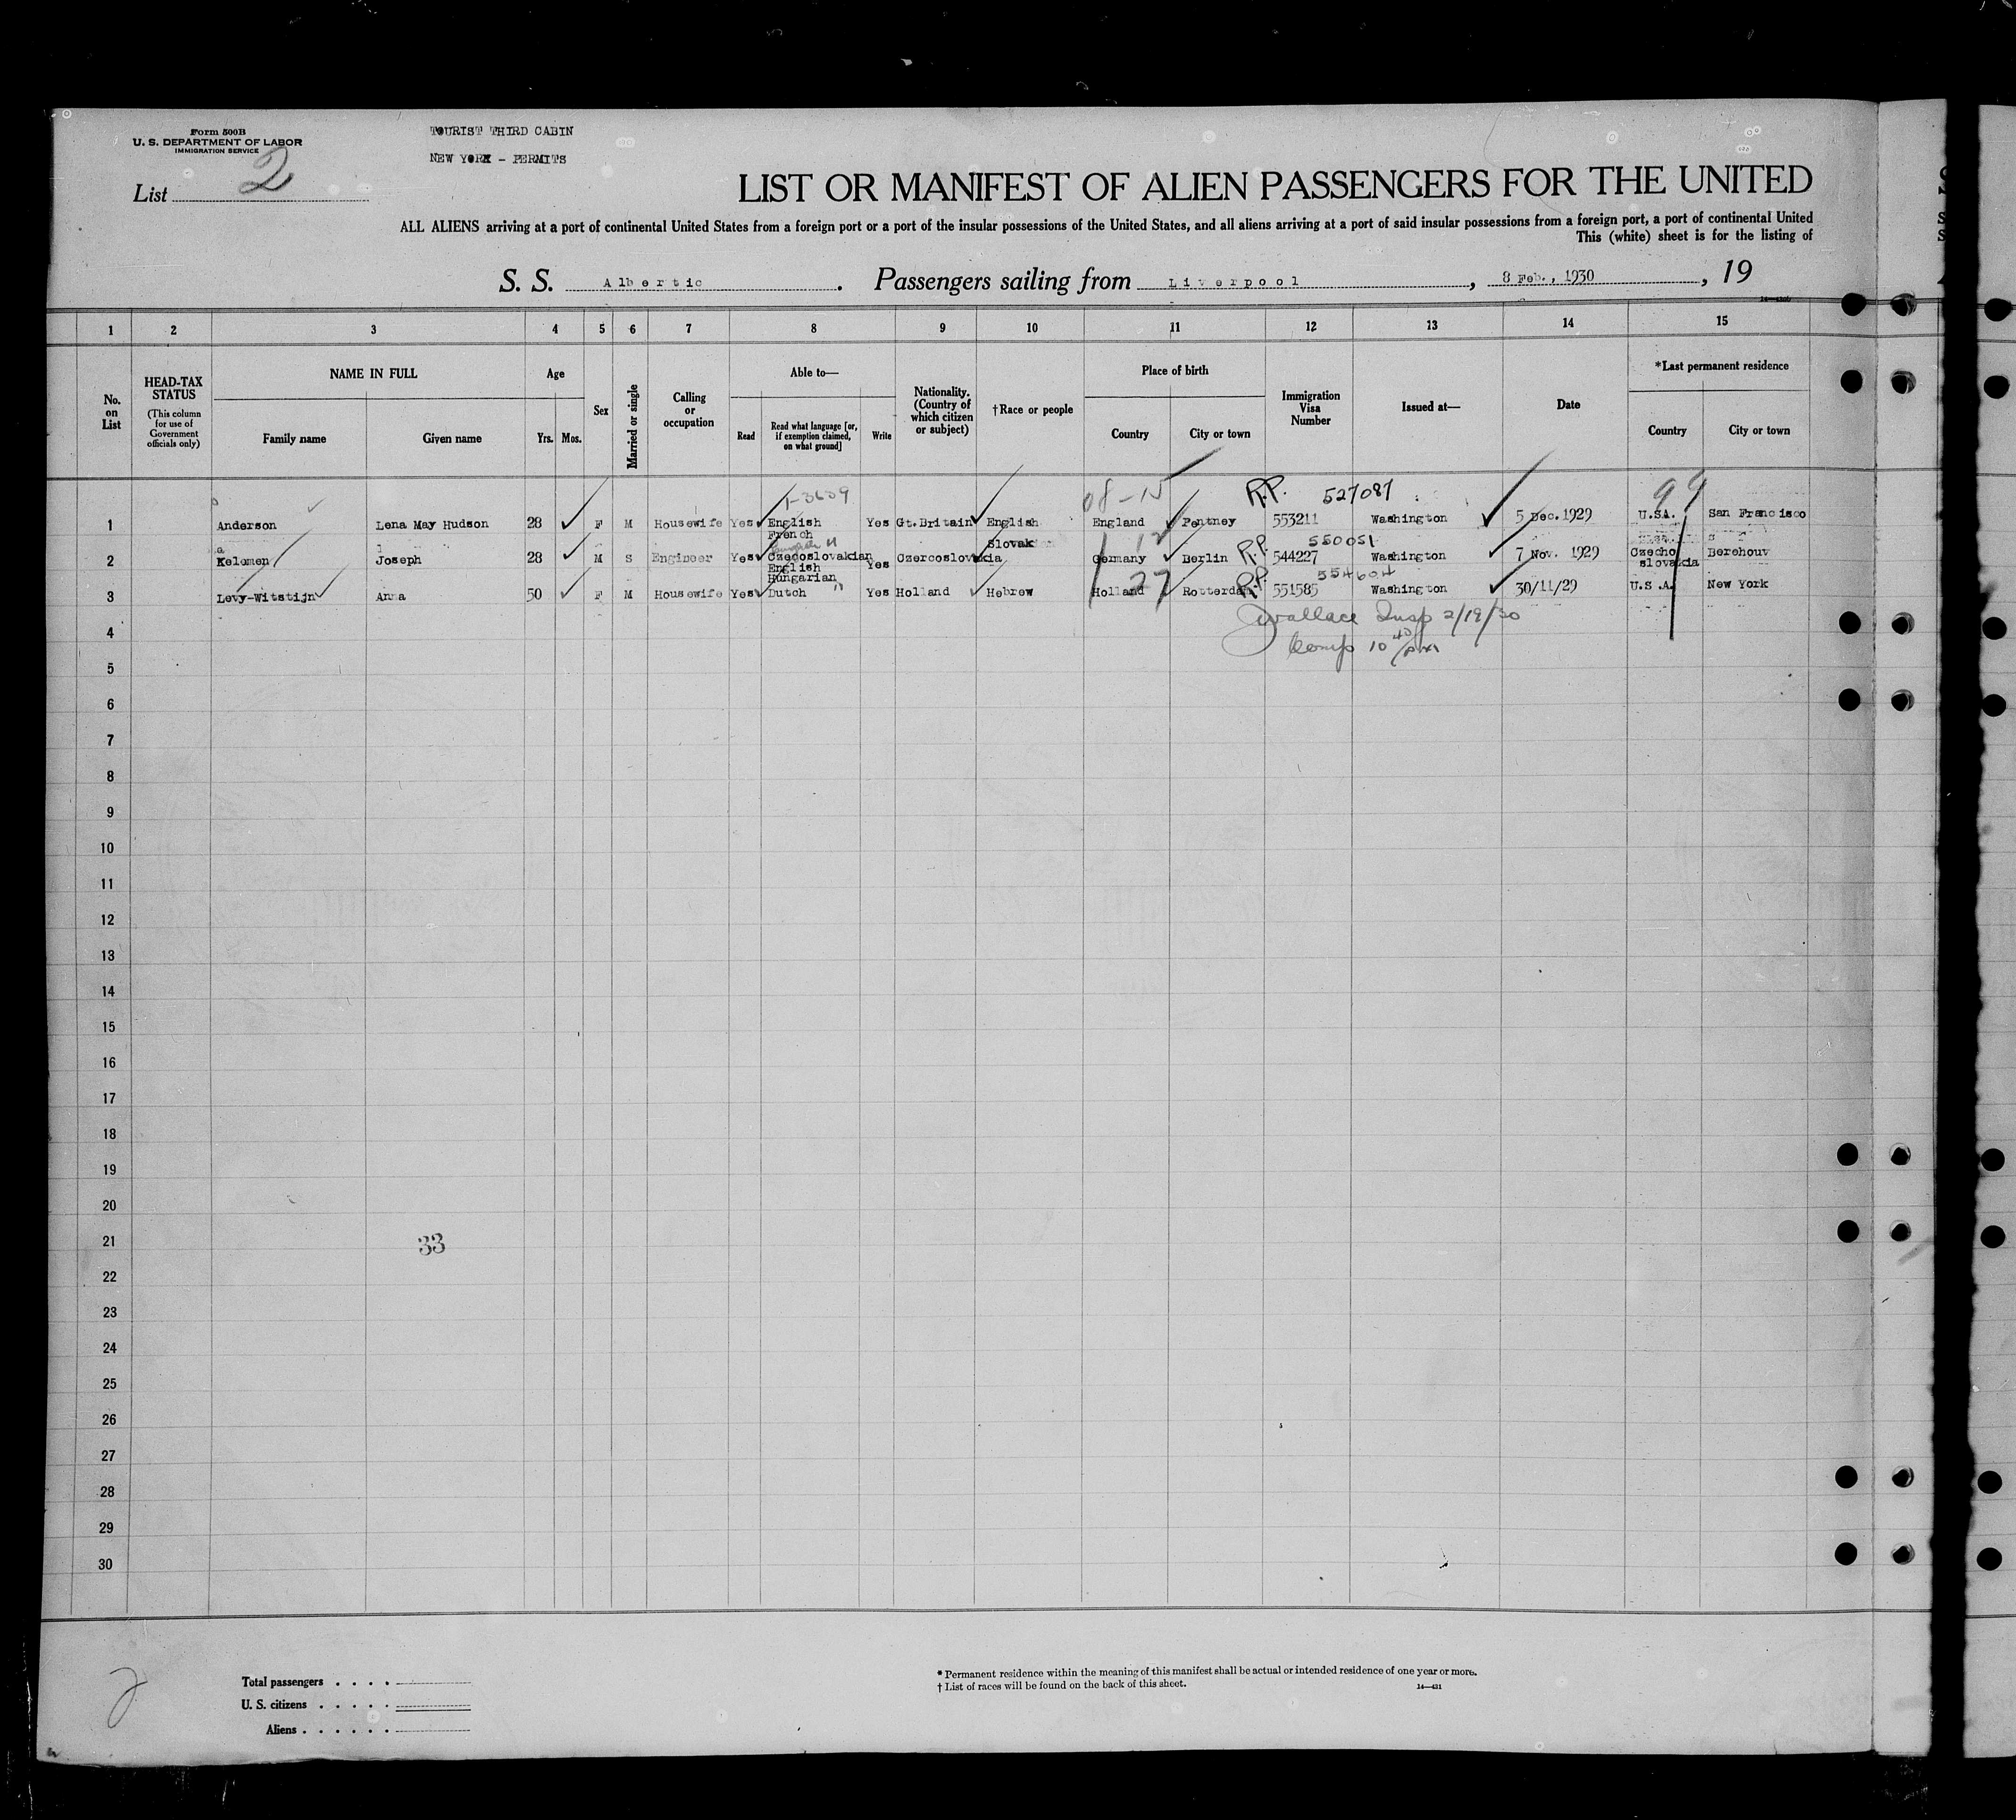 Form 500B
U. S. DEPARTMENT OF LABOR
IMMIGRATION SERVICE
TOURIST THIRD CABIN
NEW YORK - PERMITS
List 2
LIST OR MANIFEST OF ALIEN PASSENGERS FOR THE UNITED
ALL ALIENS arriving at a port of continental United States from a foreign port or a port of the insular possessions of the United States, and all aliens arriving at a port of said insular possessions from a foreign port, a port of continental United
This (white) sheet is for the listing of
S. S. Albertic. Passengers sailing from Liverpool, 8 Feb., 1930, 19
1 2 3 4 5 6 7 8 9 10 11 12 13 14 15
No. on List
HEAD-TAX STATUS
(This column for use of Government officials only)
NAME IN FULL
Family name Given name
Age
Yrs. Mos.
Sex
Married or single
Calling or occupation
Able to—
Read
Read what language [or, if exemption claimed, on what ground]
Write
Nationality. (Country of which citizen or subject)
†Race or people
Place of birth
Country City or town
Immigration Visa Number
Issued at—
Date
*Last permanent residence
Country City or town
1-3609 08-15 R.P. 527087 99
1 Anderson Lena May Hudson 28 F M Housewife Yes English French Yes Gt.Britain English England Pentney 553211 Washington 5 Dec.1929 U.S.A. San Francisco
R.P. 550051
2 Kelemen Joseph 28 M S Engineer Yes Czecoslovakian English Hungarian Yes Czercoslovakia Slovak Germany Berlin 544227 Washington 7 Nov. 1929 Czecho slovakia Berehouv
27 R.P. 554604
3 Levy-Witstijn Anna 50 F M Housewife Yes Dutch Yes Holland Hebrew Holland Rotterdam 551585 Washington 30/11/29 U.S.A. New York
Wallace Insp 2/19/30
4
Comp 10 40/pm
5
6
7
8
9
10
11
12
13
14
15
16
17
18
19
20
21
33
22
23
24
25
26
27
28
29
30
2
Total passengers . . . .
U. S. citizens . . . . .
Aliens . . . . . .
* Permanent residence within the meaning of this manifest shall be actual or intended residence of one year or more.
† List of races will be found on the back of this sheet.
14—431